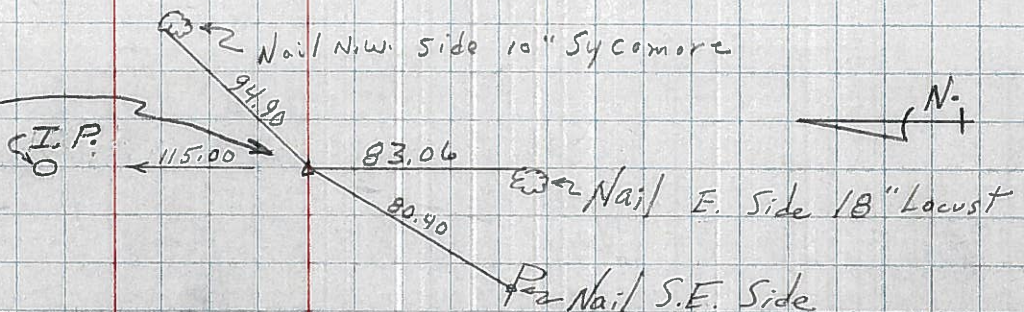 Nail N.W. Side 10" Sycamore
94.90
N.
I.P.
115.00
83.06
Nail E. Side 18" Locust
80.40
Nail S.E. Side